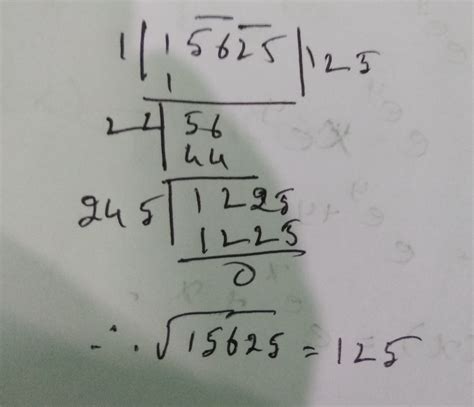 1 | 1 56 25 | 125
1
22 | 56
44
245 | 1225
1225
0
∴ √15625 = 125